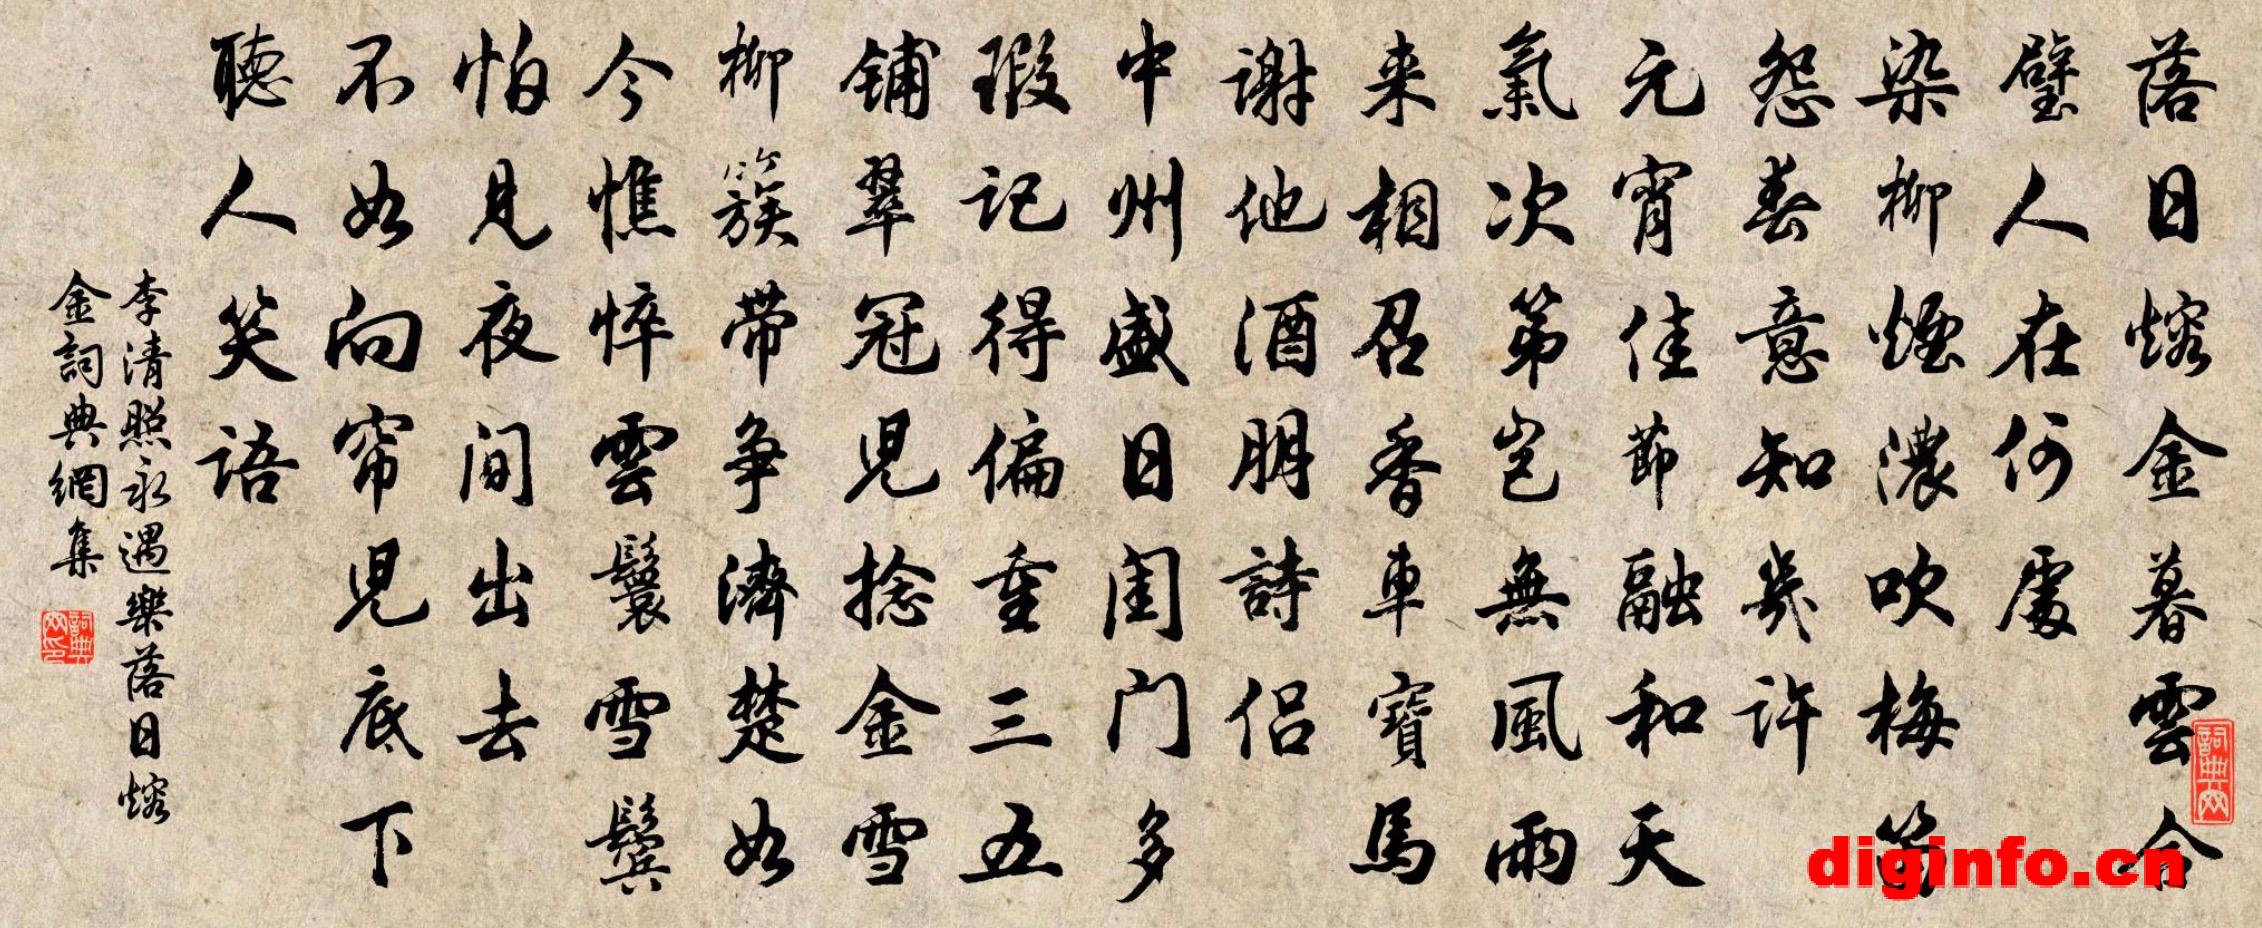 落日熔金暮雲合
璧人在何處
染柳煙濃吹梅笛
怨春意知幾许
元宵佳節融和天
氣次第豈無風雨
来相召香車寶馬
謝他酒朋詩侣
中州盛日闺门多
瑕记得偏重三五
铺翠冠児捻金雪
柳簇带争濟楚如
今憔悴雲鬟雪鬓
怕见夜间出去
不如向帘児底下
聴人笑语
李清照永遇樂落日熔
金詞典網集
詞典网
詞典网印
diginfo.cn